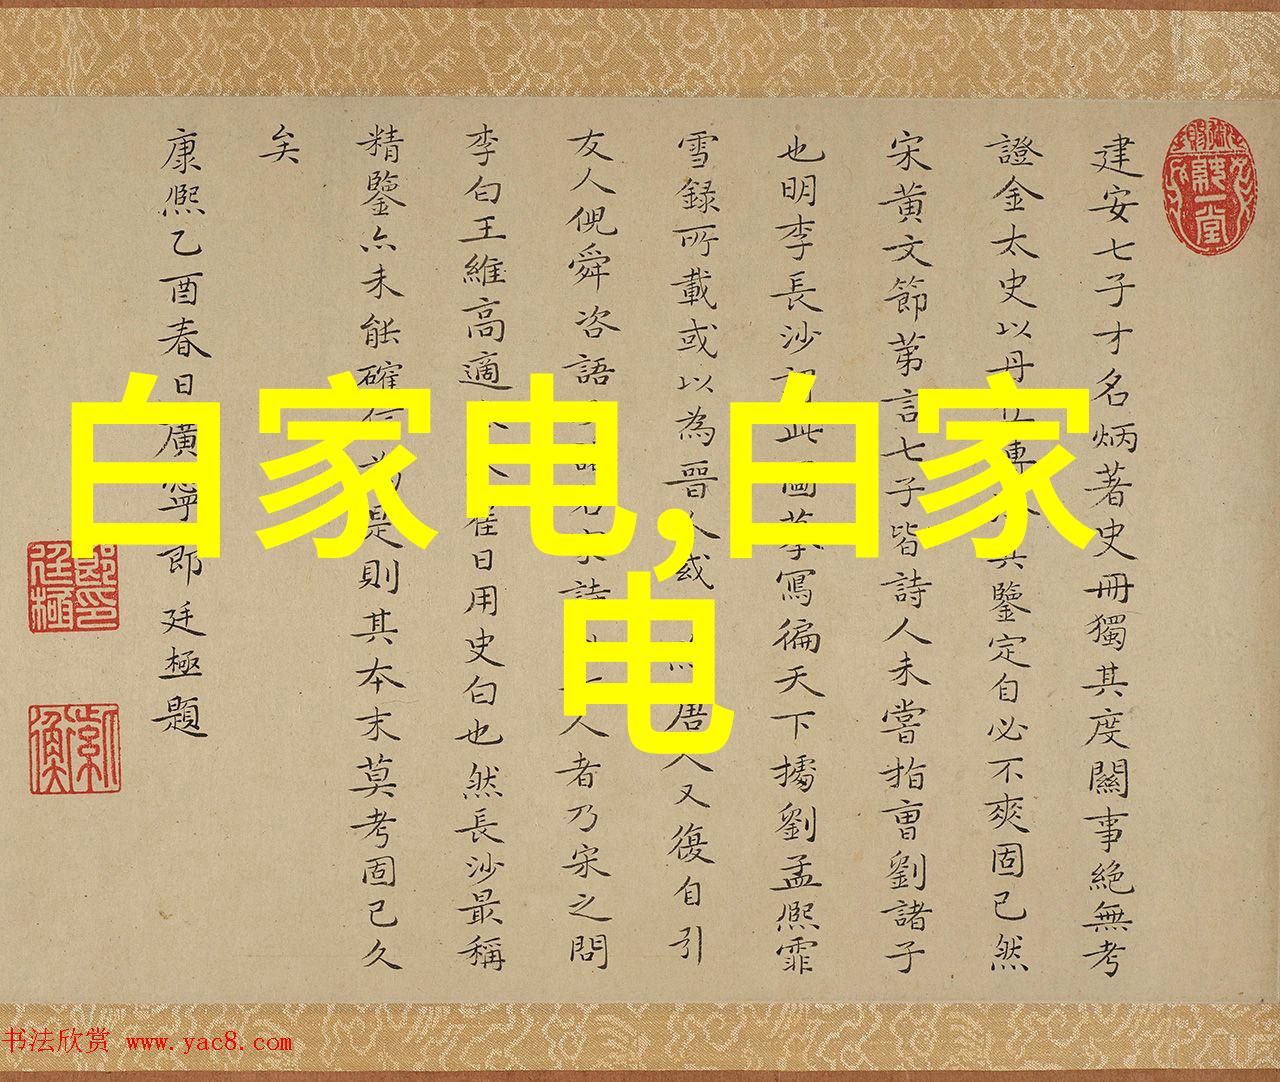 建安七子才名炳著史冊獨其度關事絕無考
證金太史以丹其鑒定自必不爽固已然
宋黃文節第言七子皆詩人未嘗指曹劉諸子
也明李長沙此圖摹寫徧天下據劉孟熙霏
雪録所載或以為晉人或唐人又復自引
友人倪舜咨語詩人者乃宋之問
李白王維高適崔日用史白也然長沙最稱
精鑒亦未能確是則其本末莫考固已久
矣
康熙乙酉春日廣寧郎廷極題
白家电,白家
电
书法欣赏 www.yac8.com